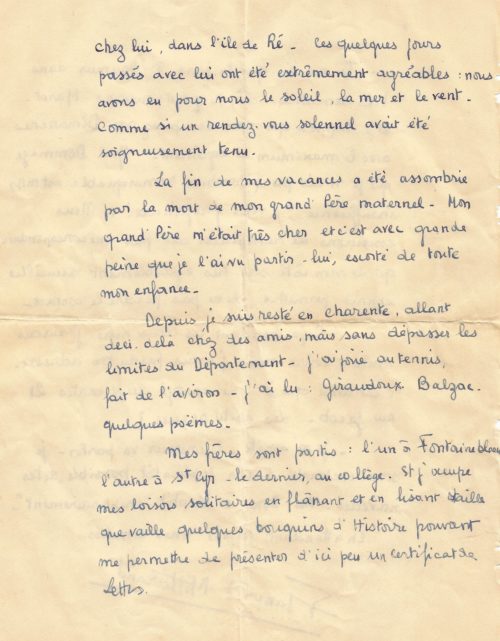 chez lui, dans l'île de Ré - Ces quelques jours
passés avec lui ont été extrêmement agréables : nous
avons eu pour nous le soleil, la mer et le vent -
Comme si un rendez-vous solennel avait été
soigneusement tenu.
La fin de mes vacances a été assombrie
par la mort de mon grand Père maternel - Mon
grand Père m'était très cher et c'est avec grande
peine que je l'ai vu partir - lui, escorté de toute
mon enfance -
Depuis, je suis resté en Charente, allant
deci. delà chez des amis, mais sans dépasser les
limites du Département - j'ai joué au tennis,
fait de l'aviron - j'ai lu : Giraudoux. Balzac.
quelques poèmes -
Mes frères sont partis : l'un à Fontainebleau
l'autre à St Cyr - le dernier, au collège. Et j'occupe
mes loisirs solitaires en flânant et en lisant vaille
que vaille quelques bouquins d'Histoire pouvant
me permettre de présenter d'ici peu un certificat de
Lettres.